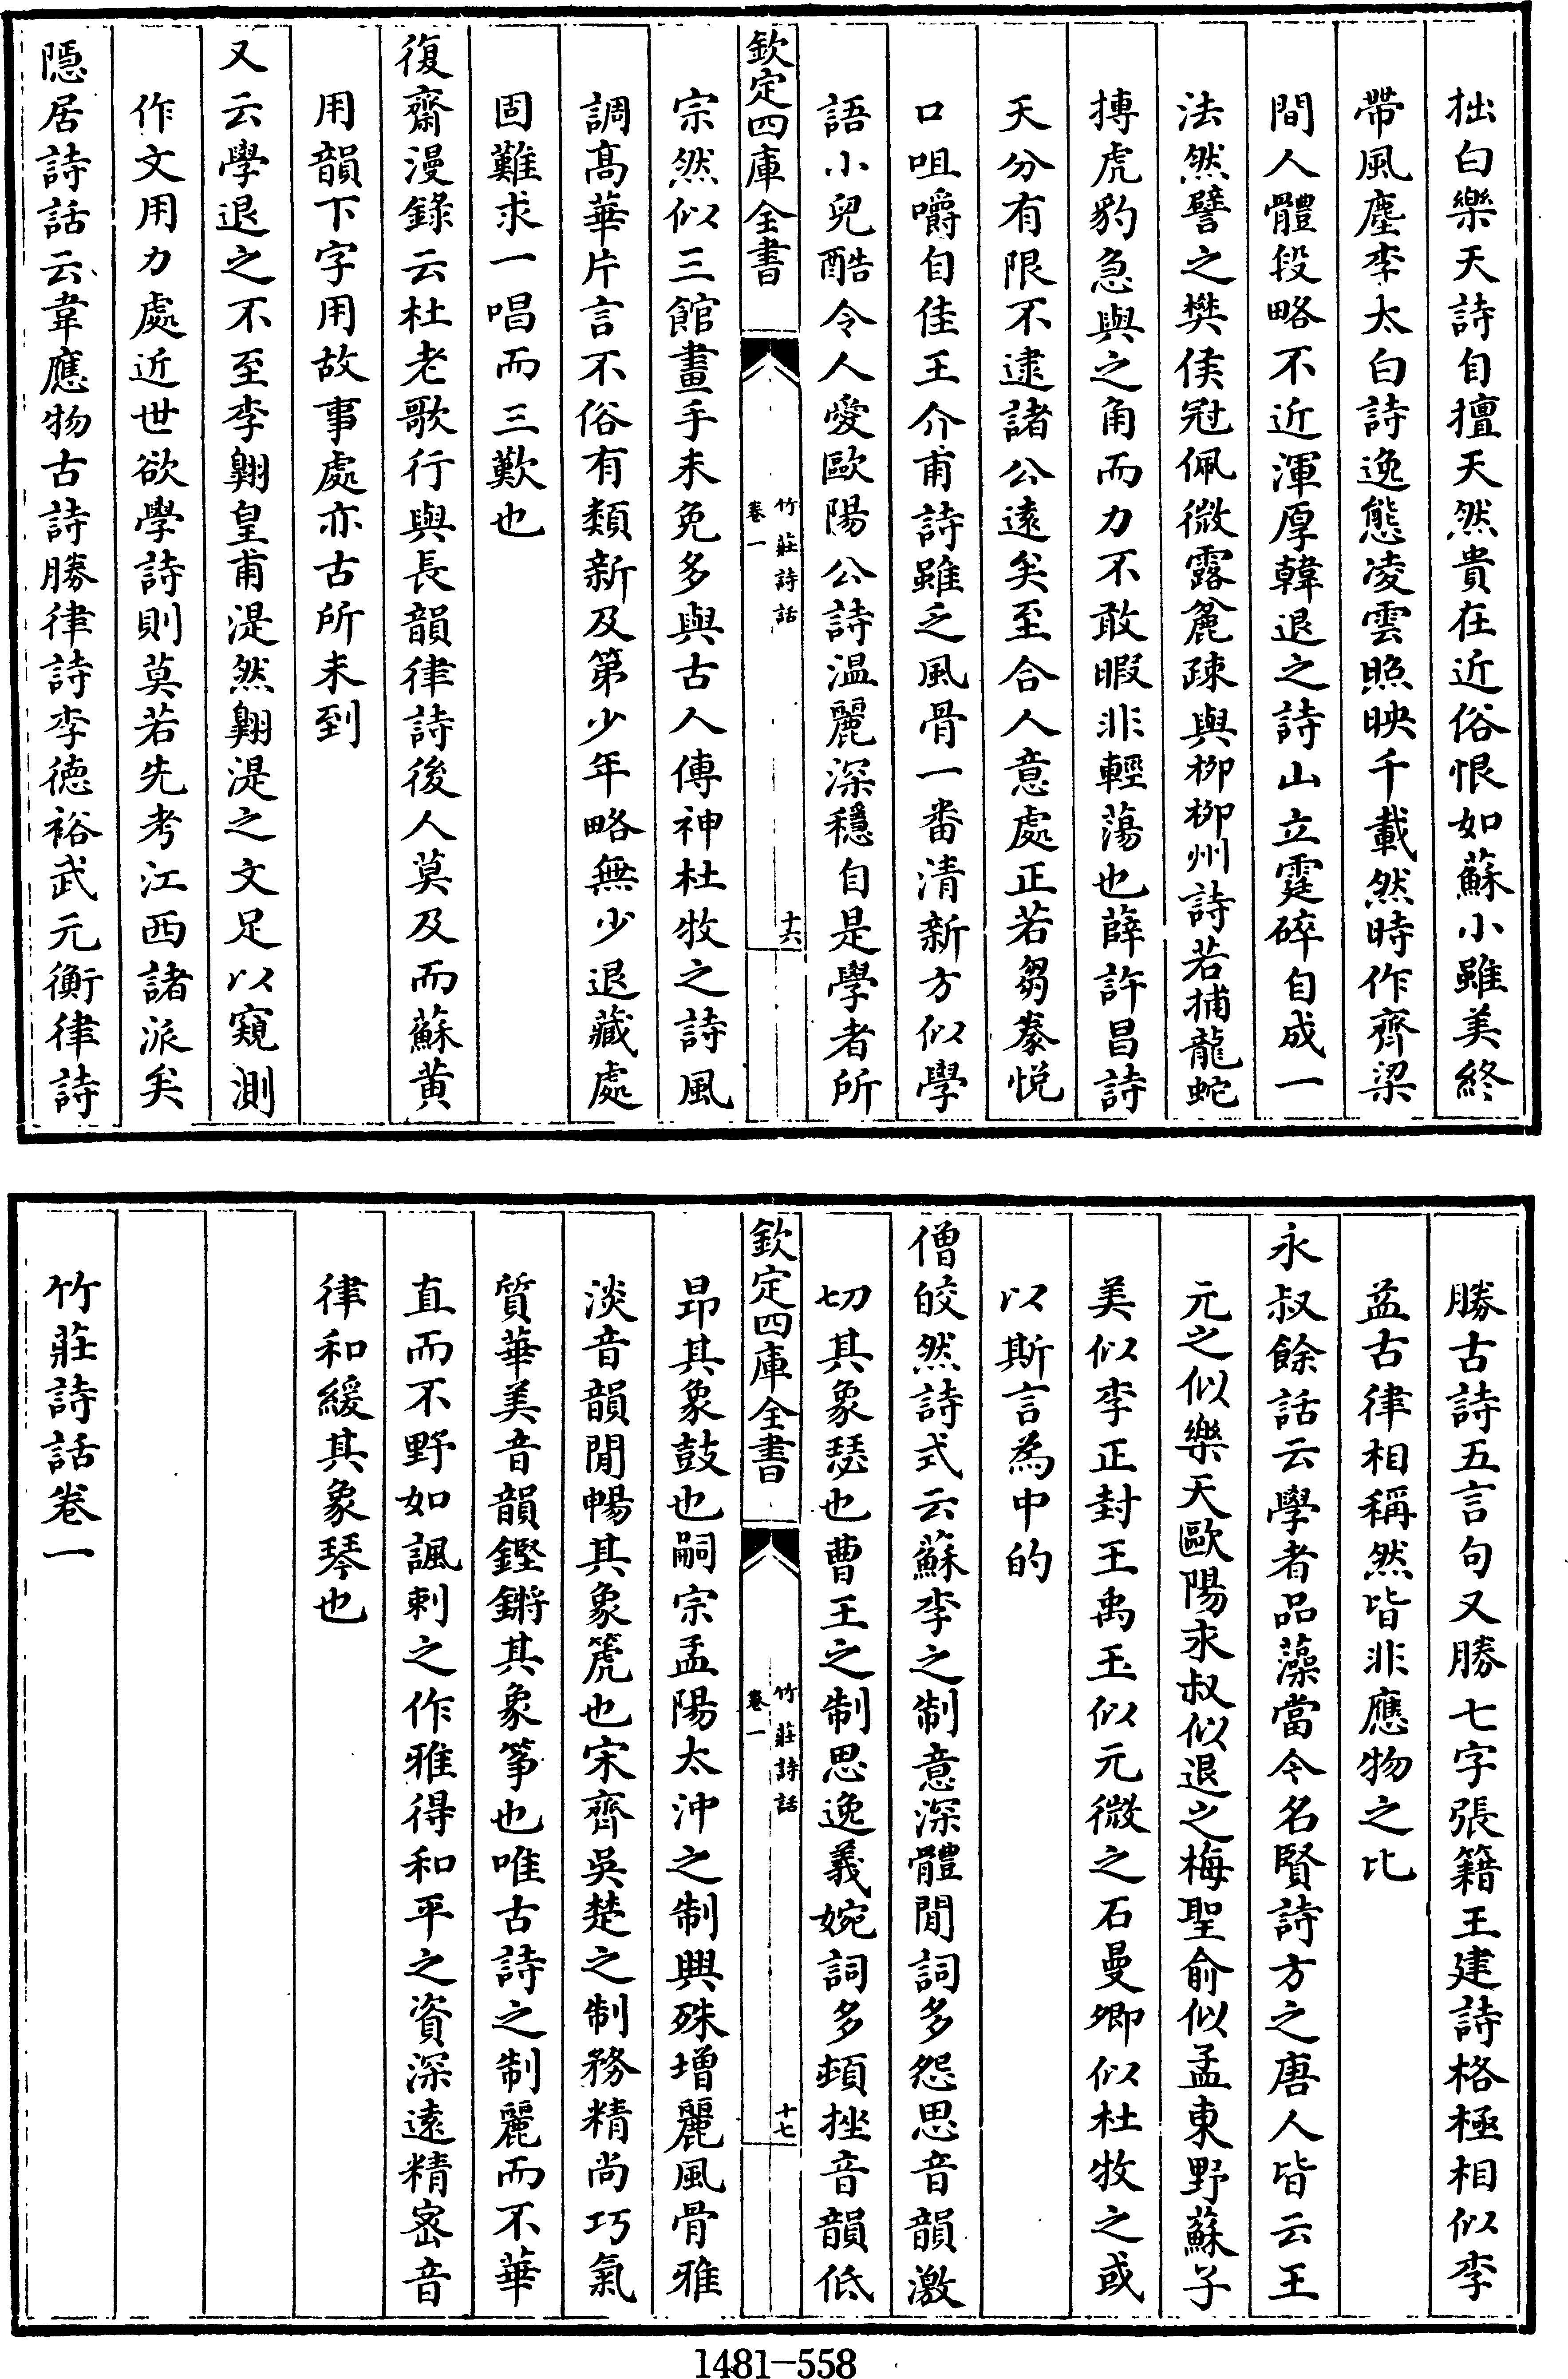 拙白樂天詩自擅天然貴在近俗恨如蘇小雖美終
帶風塵李太白詩逸態凌雲照映千載然時作齊梁
間人體段略不近渾厚韓退之詩山立霆碎自成一
法然譬之樊侯冠佩微露麄疎與柳柳州詩若捕龍蛇
搏虎豹急與之角而力不敢暇非輕蕩也薛許昌詩
天分有限不逮諸公遠矣至合人意處正若芻豢悅
口咀嚼自佳王介甫詩雖乏風骨一番清新方似學
語小兒酷令人愛歐陽公詩温麗深穩自是學者所
欽定四庫全書
竹莊詩話
卷一
十六
宗然似三館畫手未免多與古人傳神杜牧之詩風
調髙華片言不俗有類新及第少年略無少退藏處
固難求一唱而三歎也
復齋漫錄云杜老歌行與長韻律詩後人莫及而蘇黄
用韻下字用故事處亦古所未到
又云學退之不至李翺皇甫湜然翺湜之文足以窺測
作文用力處近世欲學詩則莫若先考江西諸派矣
隱居詩話云韋應物古詩勝律詩李德裕武元衡律詩
勝古詩五言句又勝七字張籍王建詩格極相似李
益古律相稱然皆非應物之比
永叔餘話云學者品藻當今名賢詩方之唐人皆云王
元之似樂天歐陽永叔似退之梅聖俞似孟東野蘇子
美似李正封王禹玉似元微之石曼卿似杜牧之或
以斯言為中的
僧皎然詩式云蘇李之制意深體閒詞多怨思音韻激
切其象瑟也曹王之制思逸義婉詞多頓挫音韻低
欽定四庫全書
竹莊詩話
卷一
十七
昻其象鼓也嗣宗孟陽太沖之制興殊增麗風骨雅
淡音韻閒暢其象箎也宋齊吳楚之制務精尚巧氣
質華美音韻鏗鏘其象筝也唯古詩之制麗而不華
直而不野如諷刺之作雅得和平之資深遠精宻音
律和緩其象琴也
竹莊詩話卷一
1481-558